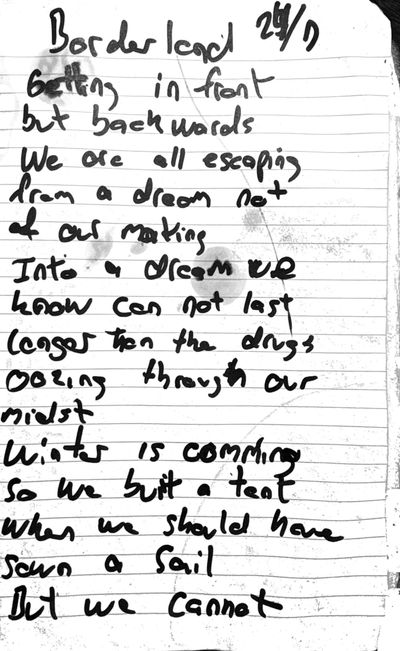 Borderland 24/11
Getting in front
but backwards
We are all escaping
from a dream not
of our making
Into a dream we
know can not last
longer then the drugs
oozing through our
midst
Winter is comming
so we built a tent
when we should have
sown a Sail
But we cannot